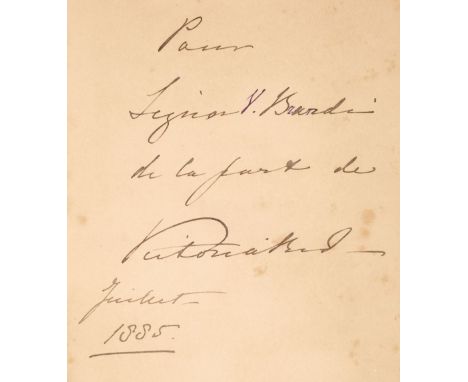 Pour
Signor V. Brandi
de la part de
Victoria R d
Juillet
1885.